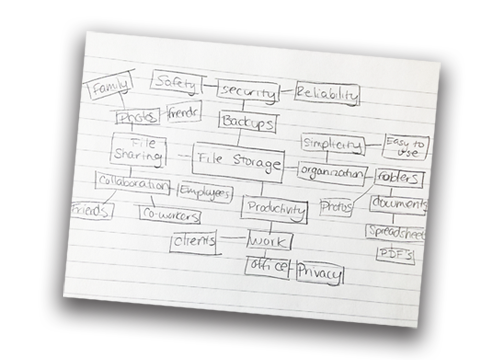 Family
Safety
Security
Reliability
Photos
friends
Backups
Simplicity
Easy to
use
File
Sharing
File Storage
organization
Folders
Collaboration
Employees
Photos
documents
Friends
Co-workers
Productivity
Spreadsheets
Clients
Work
PDF's
office
Privacy